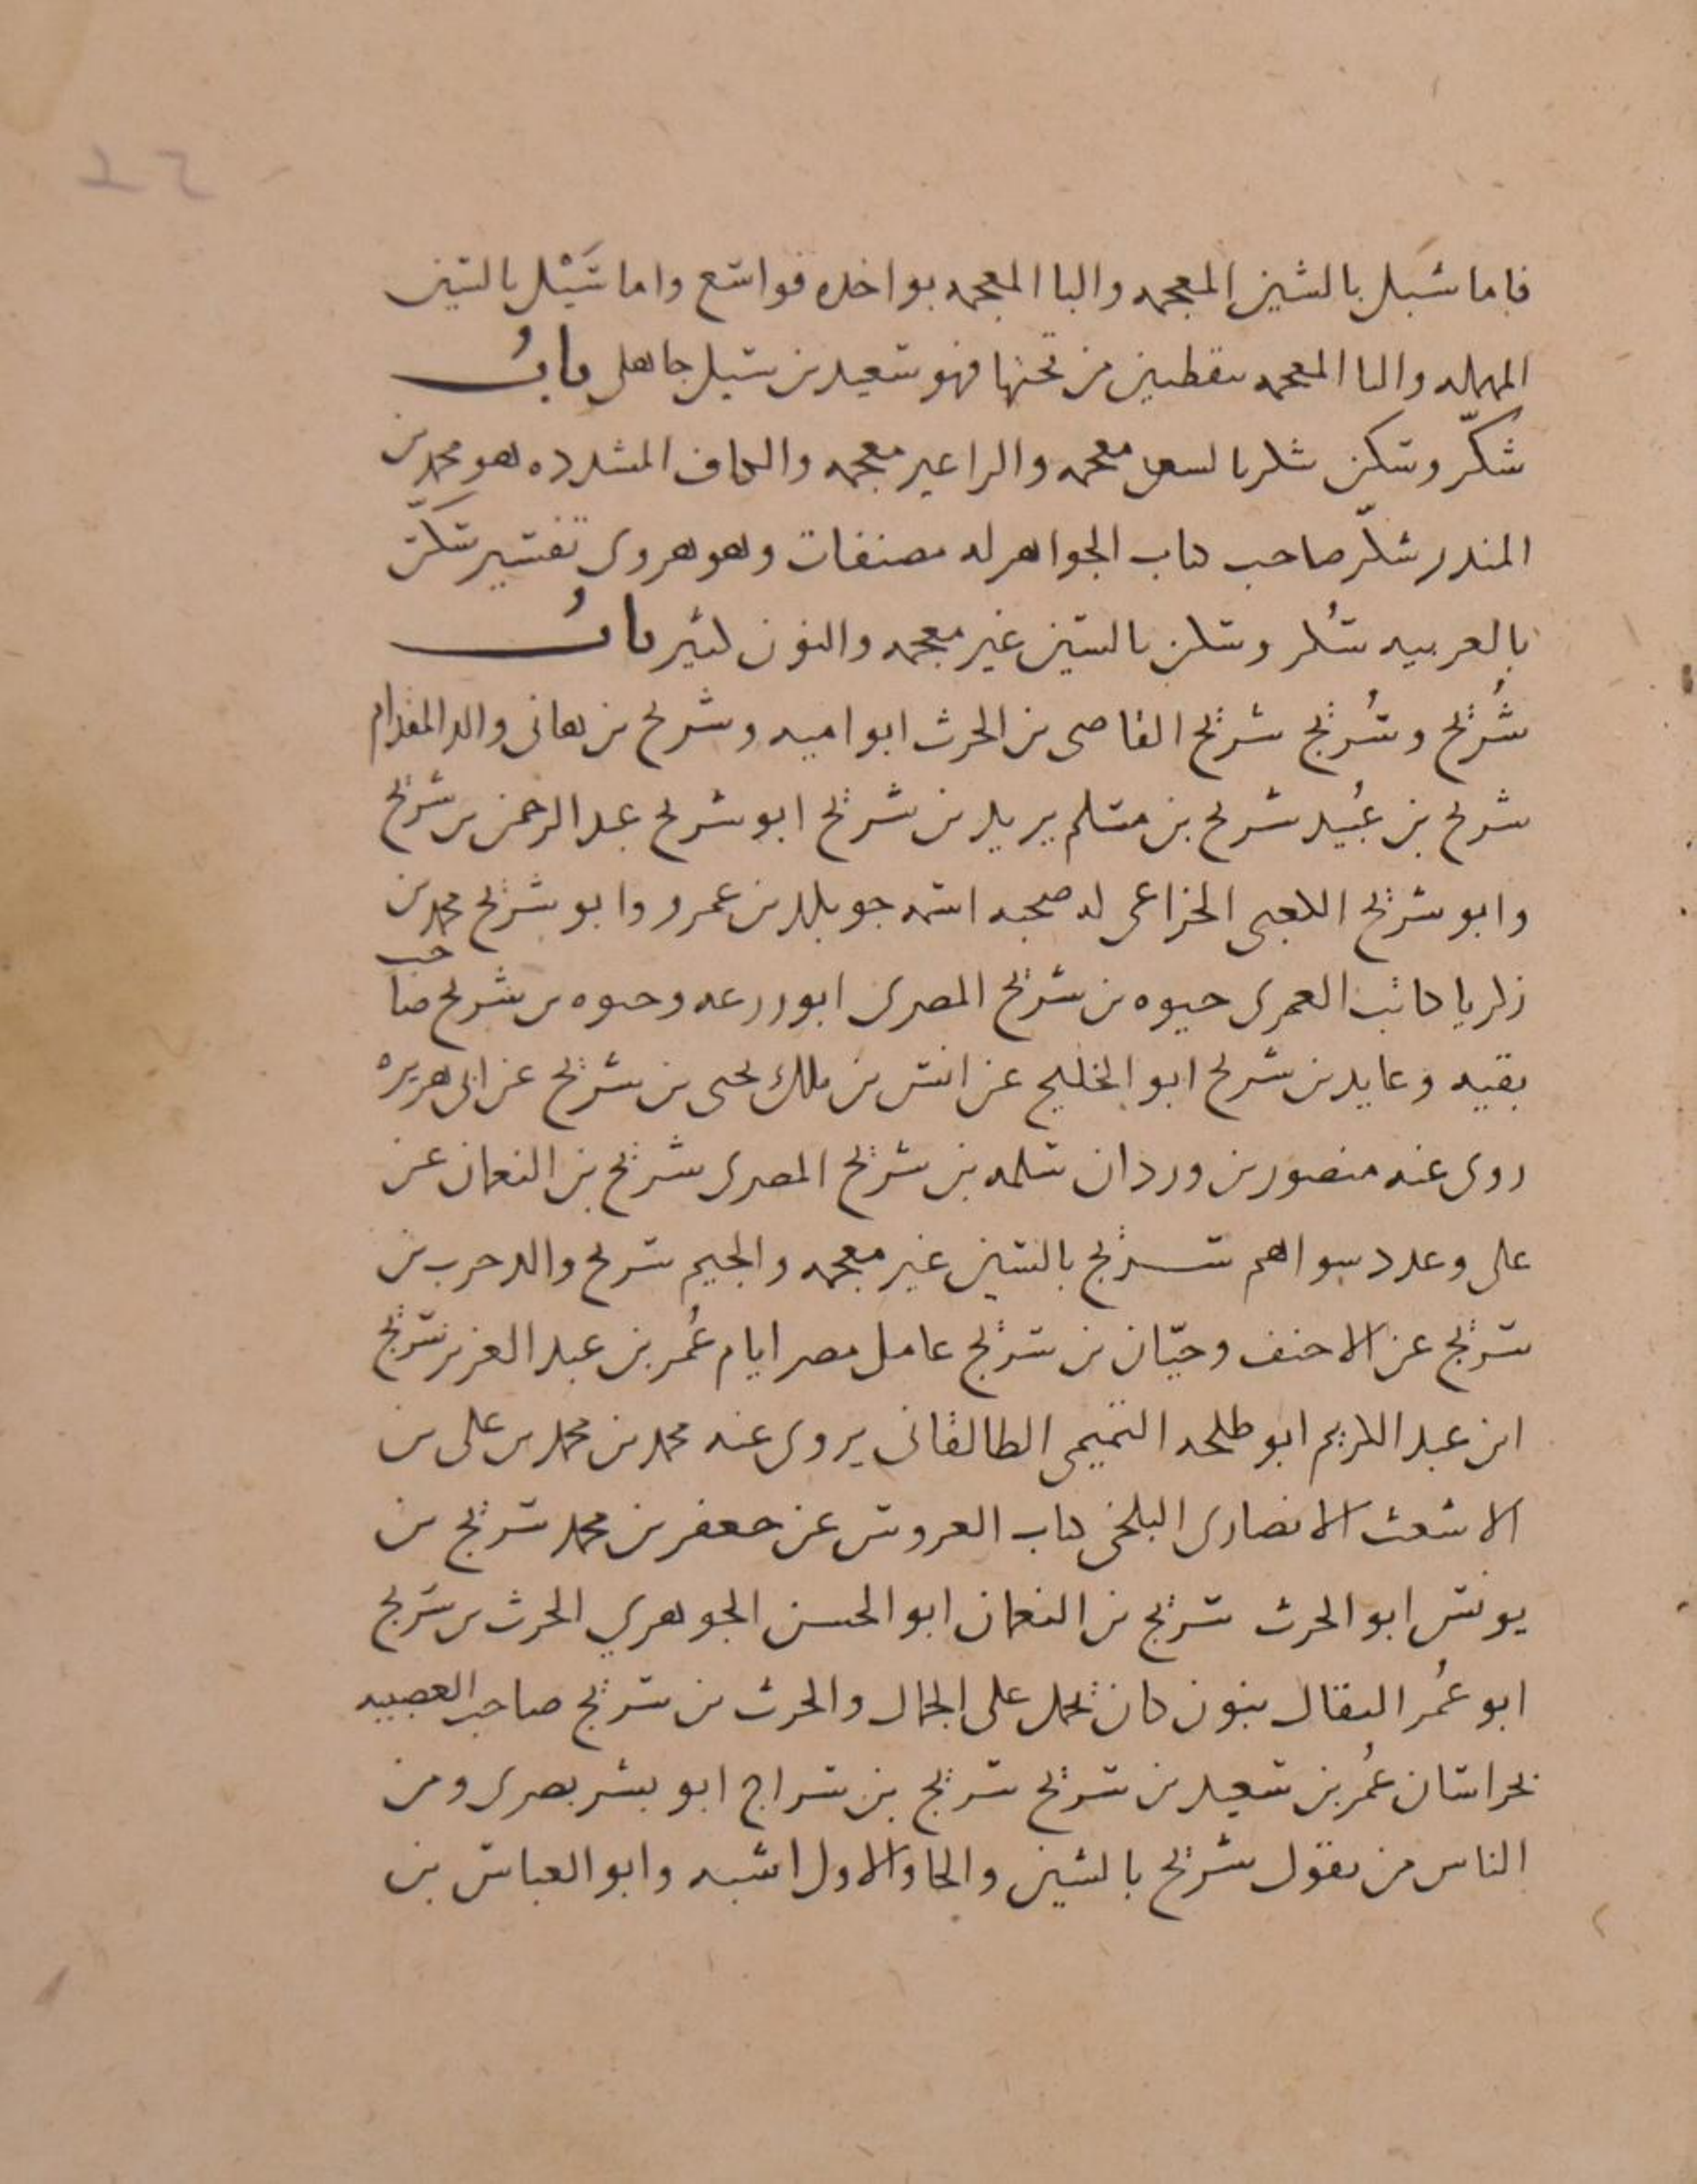 ٤٦
فاما شَبل بالشين المعجمه والبا المعجمه بواحده فواسع واما سَيْل بالسين
المهمله واليا المعجمه بنقطتين من تحتها فهو سعيد بن سيل جاهلي بابُ
شكّر وسكن شكر بالشين معجمه والرا غير معجمه والكاف المشدده هو محمد بن
المنذر شكّر صاحب كتاب الجواهر له مصنفات وهو هروي تفسير شكّر
بالعربيه سُكر وسكن بالسين غير معجمه والنون كثير بابُ
شُريح وسُريج شريح القاضي بن الحرث ابو اميه وشريح بن هاني والد المقدام
شريح بن عُبيد شريح بن مسلم يزيد بن شريح ابو شريح عبد الرحمن بن شريح
وابو شريح الكعبي الخزاعي له صحبه اسمه خويلد بن عمرو وابو شريح محمد بن
زكريا كاتب العمري حيوه بن شريح المصري ابو زرعه وحيوه بن شريح صاحب
بقيه وعايد بن شريح ابو الخليج عن انس بن ملك يحيى بن شريح عن ابي هريره
روى عنه منصور بن وردان سلمه بن شريح المصري شريح بن النعمان عن
علي وعدد سواهم سريج بالسين غير معجمه والجيم سريج والد حرب بن
سريج عن الاحنف وحيّان بن سريج عامل مصر ايام عُمر بن عبد العزيز سريج
ابن عبد الكريم ابو طلحه التميمي الطالقاني يروي عنه محمد بن محمد بن علي بن
الاشعث الانصاري البلخي كتاب العروس عن جعفر بن محمد سريج بن
يونس ابو الحرث سريج بن النعمان ابو الحسن الجوهري الحرث بن سريج
ابو عُمر النقال بنون كان يحمل على الجمال والحرث بن سريج صاحب العصبيه
بخراسان عُمر بن سعيد بن سريج سريج بن سراج ابو بشر بصري ومن
الناس من يقول شريح بالشين والحا والاول اشبه وابو العباس بن